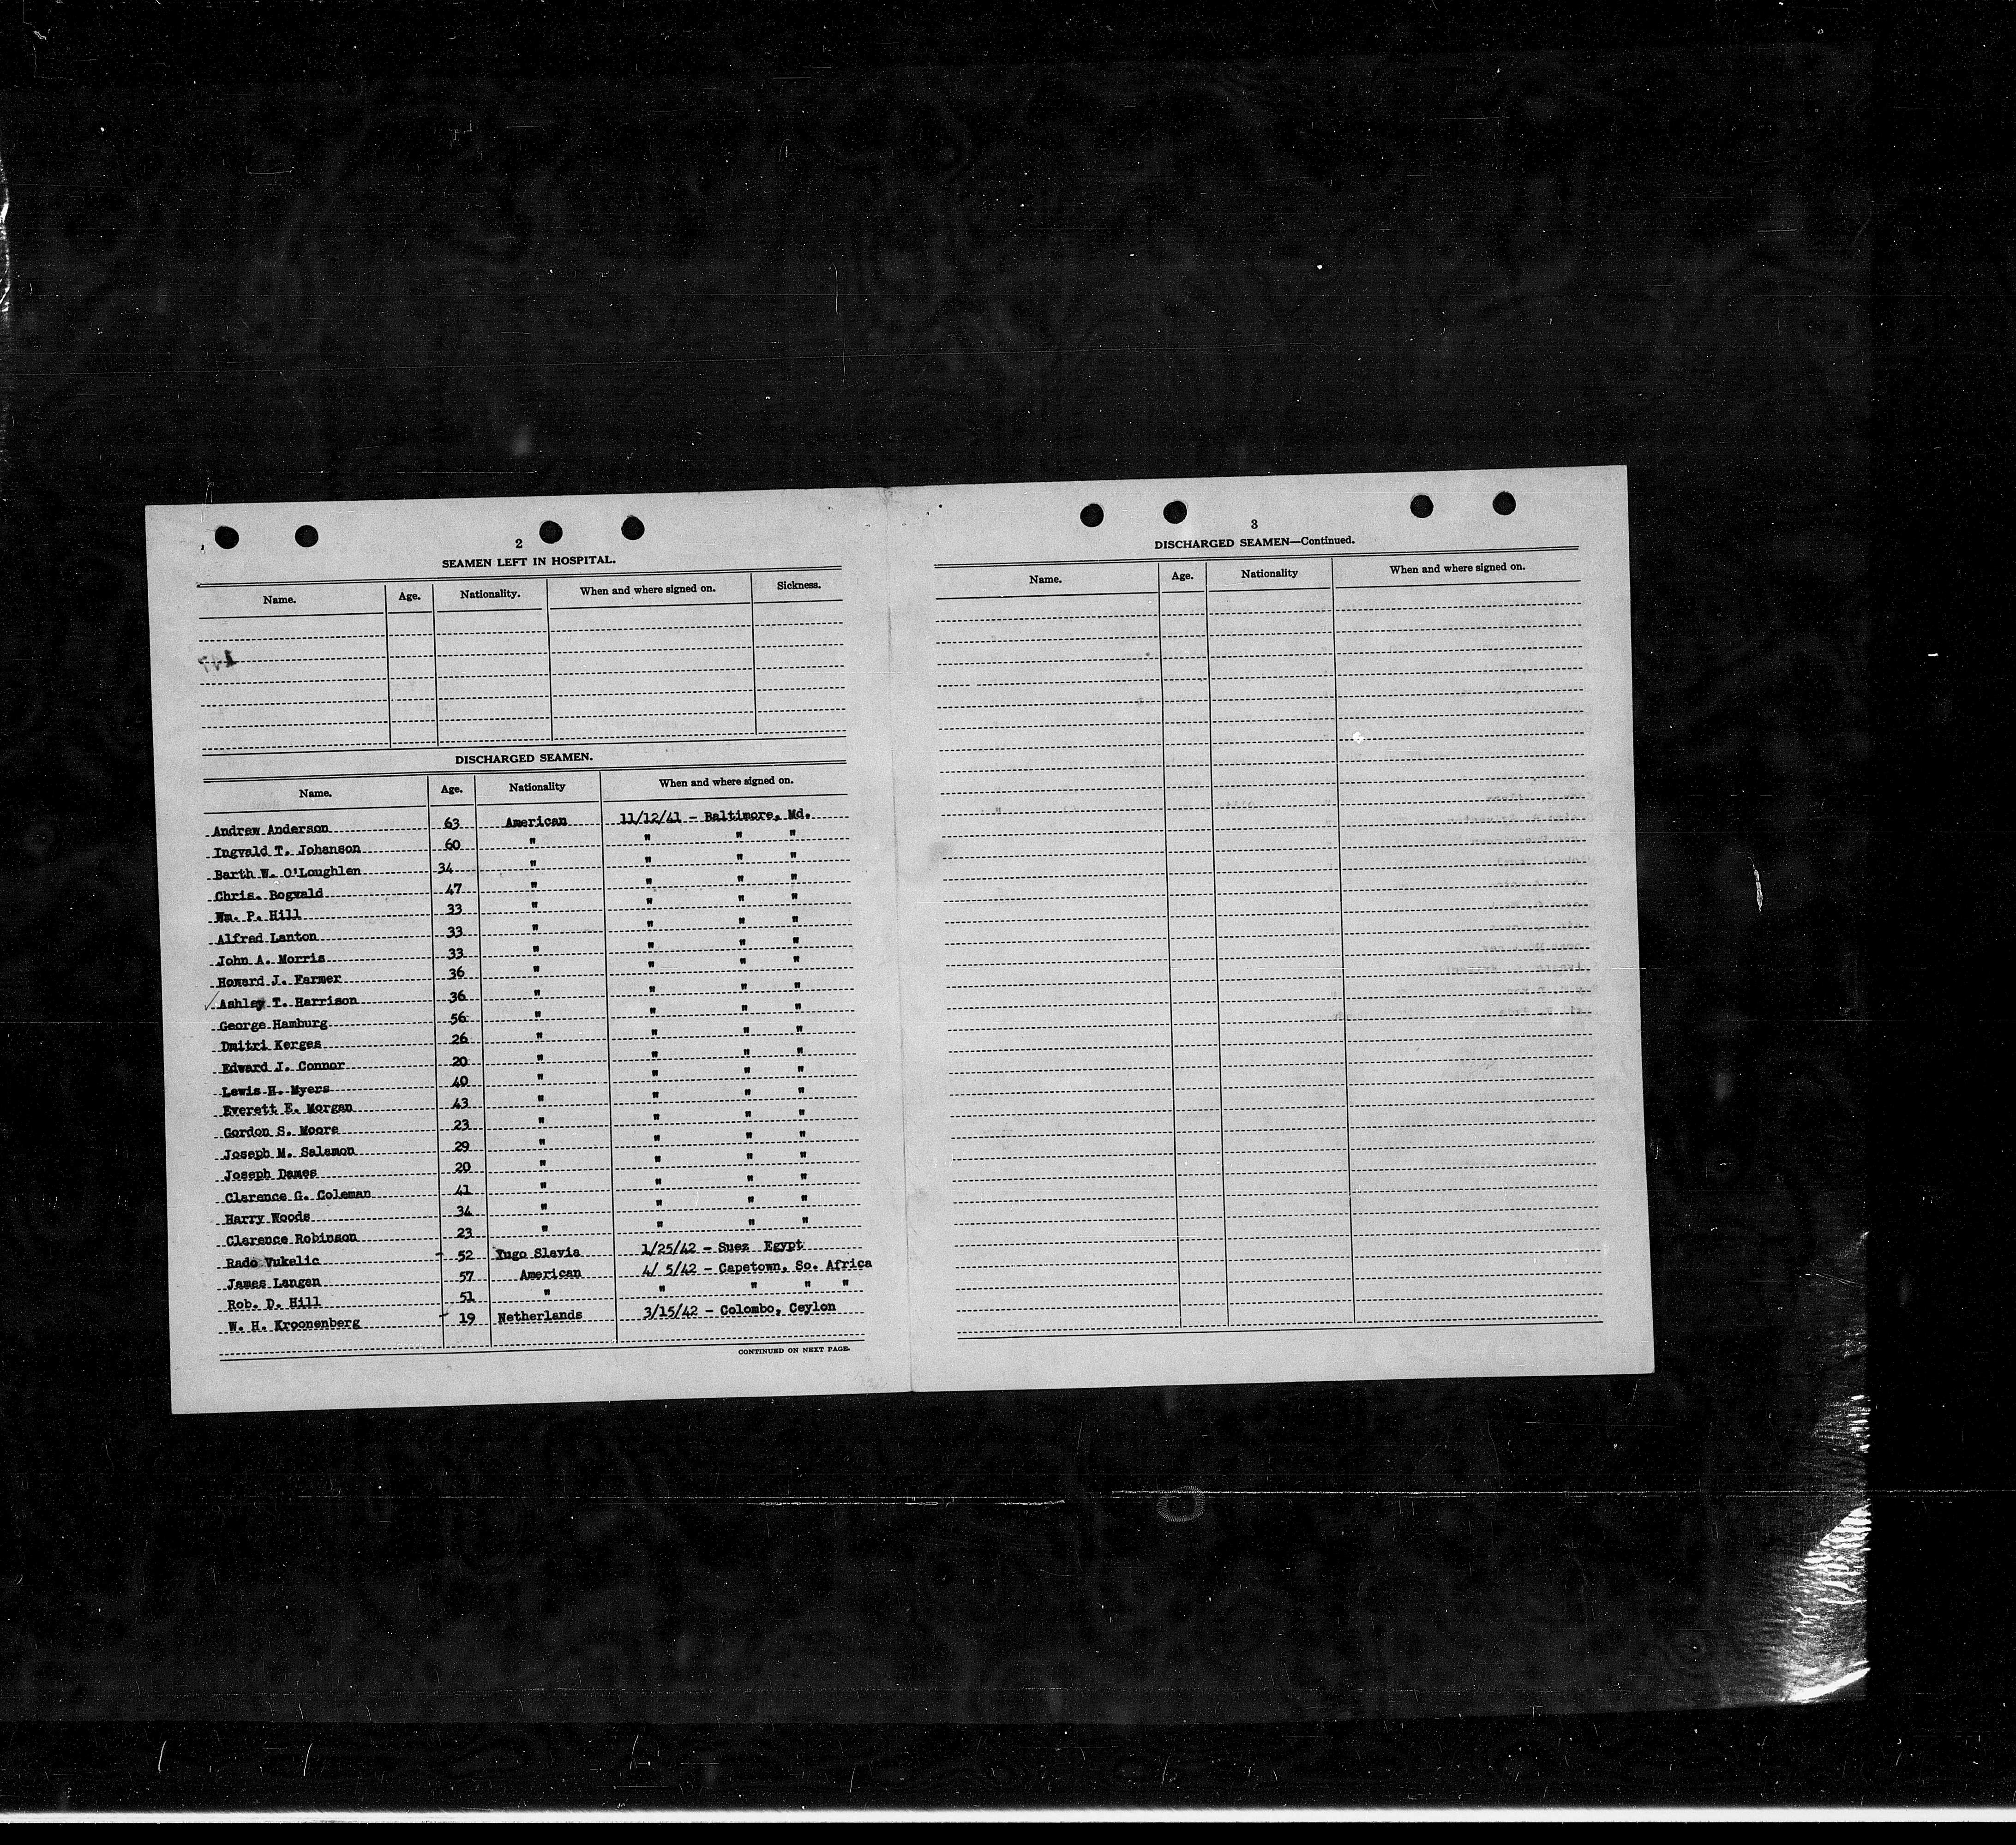 2
SEAMEN LEFT IN HOSPITAL.
Name. Age. Nationality. When and where signed on. Sickness.
DISCHARGED SEAMEN.
Name. Age. Nationality When and where signed on.
Andrew Anderson 63 American 11/12/41 - Baltimore, Md.
Ingvald T. Johanson 60 " " " "
Barth W. O'Loughlen 34 " " " "
Chris. Bogvald 47 " " " "
Wm. P. Hill 33 " " " "
Alfred Lanton 33 " " " "
John A. Morris 33 " " " "
Howard J. Farmer 36 " " " "
Ashley T. Harrison 36 " " " "
George Hamburg 56 " " " "
Dmitri Kerges 26 " " " "
Edward J. Connor 20 " " " "
Lewis H. Myers 40 " " " "
Everett E. Morgan 43 " " " "
Gordon S. Moore 23 " " " "
Joseph M. Salamon 29 " " " "
Joseph Dames 20 " " " "
Clarence G. Coleman 41 " " " "
Harry Woods 34 " " " "
Clarence Robinson 23 " " " "
Rado Vukelic 52 Yugo Slavia 1/25/42 - Suez Egypt
James Langen 57 American 4/ 5/42 - Capetown, So. Africa
Rob. D. Hill 51 " " " " "
W. H. Kroonenberg 19 Netherlands 3/15/42 - Colombo, Ceylon
CONTINUED ON NEXT PAGE.
3
DISCHARGED SEAMEN—Continued.
Name. Age. Nationality When and where signed on.